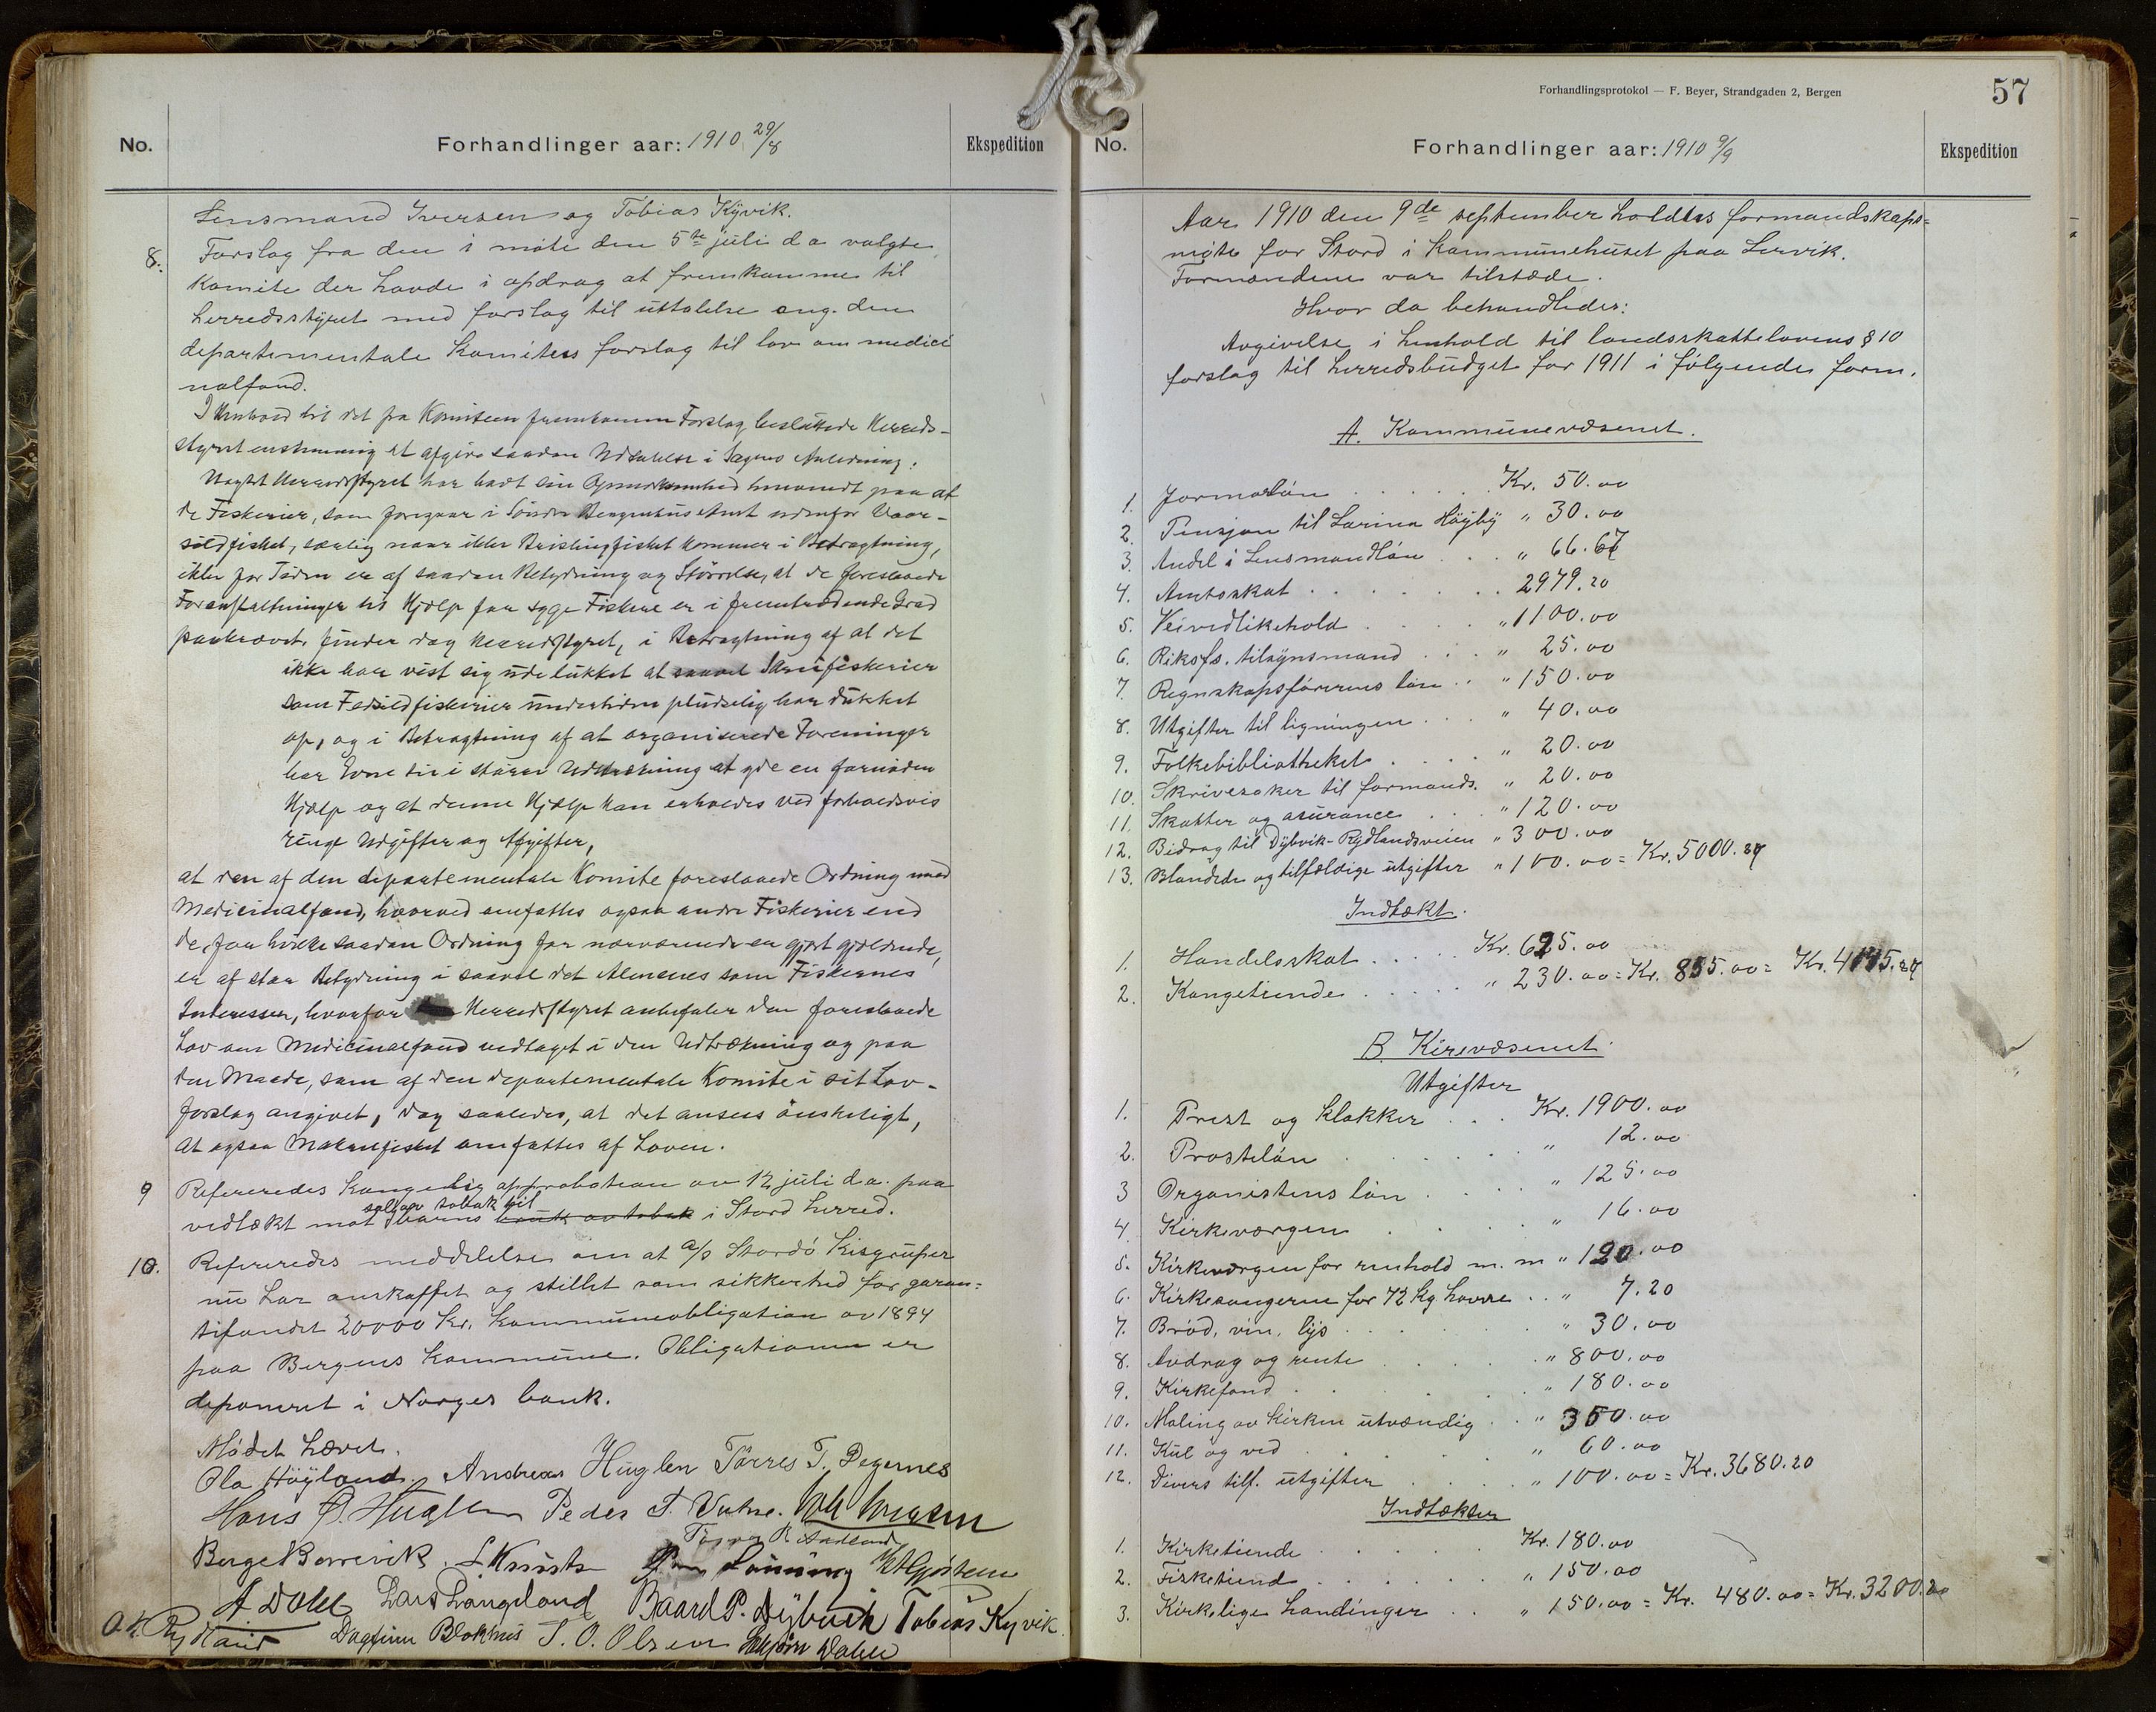 No. Forhandlinger aar: 1910 29/8 Ekspedition
Lensmand Iversen og Tobias Kyvik.
8. Forslag fra den i møte den 5te juli d a valgte
komite der havde i opdrag at fremkomme til
herredsstyret med forslag til uttalelse ang. den
departementale komitees forslag til lov om medici
nalfond.
I Henhold til det fra Komiteen fremkomne Forslag besluttede Herreds-
styret enstemmig at afgive saadan Udtalelse i Sagens Anledning:
Uagtet Herredsstyret har havt sin Opmerksomhed henvendt paa at
de Fiskerier, som foregaar i Søndre Bergenhus Amt udenfor Vaar-
sildfisket, særlig naar ikke Brislingfisket kommer i Betragtning,
ikke for Tiden er af saadan Betydning og Størrelse, at de foreslaaede
Foranstaltninger til Hjælp for syge Fiskere er i fremtrædende Grad
paakrævet, finder dog Herredsstyret, i Betragtning af at det
ikke har vist sig udelukket at saavel Storsildfiskerier
som Fedsildfiskerier undertiden pludselig har dukket
op, og i Betragtning af at organiserede Foreninger
har Evne til i større Udstrækning at yde en fornøden
Hjælp og at denne Hjælp kan erholdes ved forholdsvis
ringe Udgifter og Afgifter,
at den af den departementale Komite foreslaaede Ordning med
Medicinalfond, hvorved omfattes ogsaa andre Fiskerier end
de, for hvilke saadan Ordning for nærværende er gjort gjældende,
er af stor Betydning i saavel det Almenes som Fiskernes
Interesser, hvorfor Herredsstyret anbefaler den foreslaaede
Lov om Medicinalfond vedtaget i den Udtrækning og paa
den Maade, som af den departementale Komite i sit Lov-
forslag angivet, dog saaledes, at det ansees ønskeligt,
at ogsaa Makrelfisket omfattes af Loven.
9 Refereredes kongelig approbation av 12 juli d.a. paa
salg av tobak til
vedtækt mot barns bruk av tobak i Stord herred.
10. Refereredes meddelelse om at a/s Stordø Kisgruper
nu har anskaffet og stillet som sikkerhed for garan=
tifondet 20000 Kr. kommuneobligation av 1894
paa Bergens kommune. Obligationen er
deponeret i Norges bank.
Mødet hævet.
Ola Høyland. Andreas Huglen Tørres T. Digernes
Hans Ø. Huglen Peder T. Vatne.
Børge Børrevik.
A Dahl Lars Langeland Baard P. Dybvik Tobias Kyvik.
O. H. Rydland Dagfinn Blokhus T. O. Olsen Dahle
Forhandlingsprotokol — F. Beyer, Strandgaden 2, Bergen
57
No. Forhandlinger aar: 1910 9/9 Ekspedition
Aar 1910 den 9de september holdtes formandskaps=
møte for Stord i kommunehuset paa Lervik.
Formændene var tilstæde.
Hvor da behandledes:
Avgivelse i henhold til landsskattelovens § 10
forslag til herredsbudget for 1911 i følgende form.
A. Kommunevæsenet.
1. Jormorløn . . . . . Kr. 50.00
2. Pensjon til Larina Høyby " 30.00
3. Andel i Lensmandløn . . . " 66.67
4. Amtsskat . . . . . . . 2979.20
5. Veivedlikehold . . . . . " 1100.00
6. Riksfs. tilsynsmand . . . " 25.00
7. Regnskapsførerens løn . . " 150.00
8. Utgifter til ligningen . . . " 40.00
9. Folkebibliotheket . . . . " 20.00
10. Skrivesaker til formands. " 20.00
11. Skatter og asurance . . . " 120.00
12. Bidrag til Dybvik-Rydlandsveien " 300.00
13. Blandede og tilfældige utgifter " 100.00 = Kr. 5000.87
Indtækt.
1. Handelsskat . . . . . Kr. 625.00
2. Kongetiende . . . . . " 230.00 = Kr. 855.00 = Kr. 4145.87
B. Kirevæsenet
Utgifter
1. Prest og klokker . . . Kr. 1900.00
2. Prosteløn . . . . . . " 12.00
3 Organistens løn . . . . " 125.00
4. Kirkeværgen . . . . . " 16.00
5. Kirkeværgen for renhold m. m " 120.00
6. Kirkesangeren for 72 kg. havre . . " 7.20
7. Brød, vin, lys . . . . . " 30.00
8. Avdrag og rente . . . . " 800.00
9. Kirkefond . . . . . . " 180.00
10. Maling av kirken utvændig . . " 350.00
11. Kul og ved . . . . . . " 60.00
12. Divers tilf. utgifter . . . . " 100.00 = Kr. 3680.20
Indtækter
1. Kirketiende . . . . . Kr. 180.00
2. Fisketiend . . . . . . " 150.00
3. Kirkelige handlinger . . " 150.00 = Kr. 480.00 = Kr. 3200.20